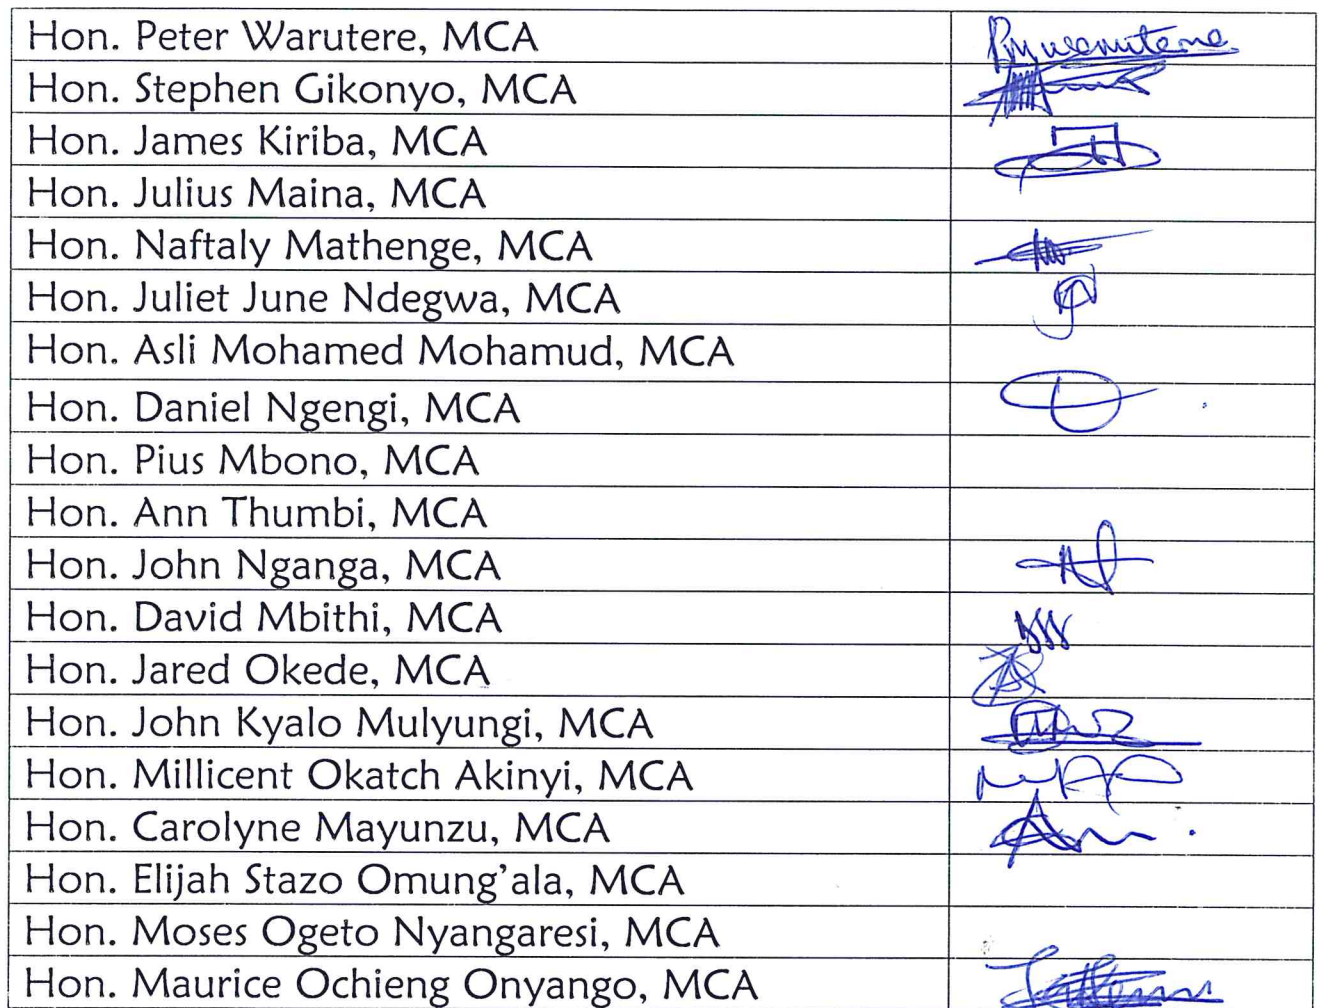 Hon. Peter Warutere, MCA
Hon. Stephen Gikonyo, MCA
Hon. James Kiriba, MCA
Hon. Julius Maina, MCA
Hon. Naftaly Mathenge, MCA
Hon. Juliet June Ndegwa, MCA
Hon. Asli Mohamed Mohamud, MCA
Hon. Daniel Ngengi, MCA
Hon. Pius Mbono, MCA
Hon. Ann Thumbi, MCA
Hon. John Nganga, MCA
Hon. David Mbithi, MCA
Hon. Jared Okede, MCA
Hon. John Kyalo Mulyungi, MCA
Hon. Millicent Okatch Akinyi, MCA
Hon. Carolyne Mayunzu, MCA
Hon. Elijah Stazo Omung'ala, MCA
Hon. Moses Ogeto Nyangaresi, MCA
Hon. Maurice Ochieng Onyango, MCA